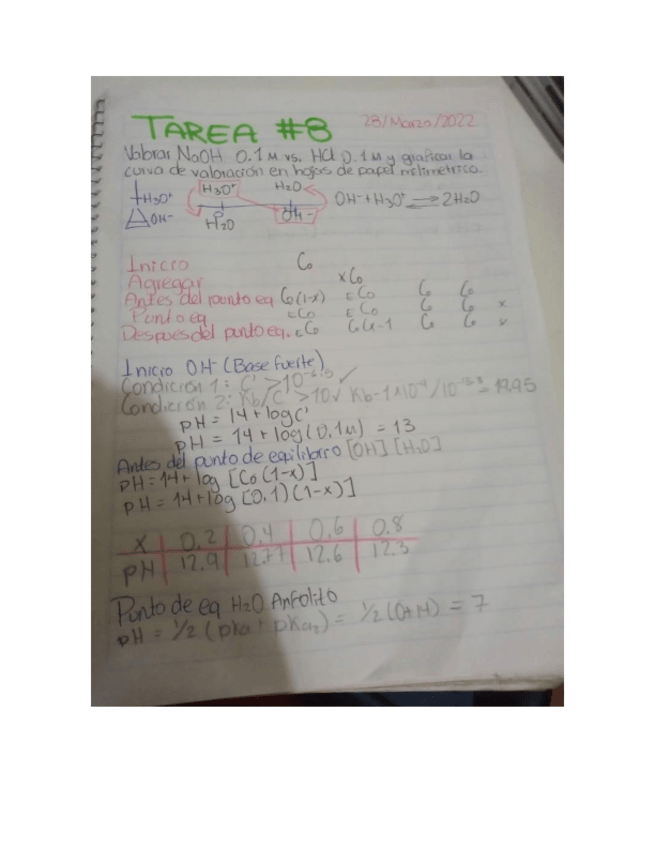 TAREA #8
28/Marzo/2022
Valorar NaOH 0.1 M vs. HCl 0.1 M y graficar la
curva de valoración en hojas de papel milimetrico.
H3O+ H3O+ H2O OH- + H3O+ ⇌ 2H2O
OH- H2O OH-
Inicio Co
Agregar xCo
Antes del punto eq. Co(1-x) εCo Co Co
Punto eq εCo εCo Co Co x
Despues del punto eq. εCo Co Co
Inicio OH- (Base fuerte)
Condición 1: C' >10
Condición 2: Kb/C' >10 ✓ = 19.95
pH = 14 + log C'
pH = 14 + log (0.1M) = 13
Antes del punto de equilibrio [OH] [H2O]
pH = 14 + log [Co (1-x)]
pH = 14 + log [0.1) (1-x)]
x 0.2 0.4 0.6 0.8
pH 12.9 12.77 12.6 12.3
Punto de eq H2O Anfolito
pH = 1/2 (pKa1 + pKa2) = 1/2 (0+14) = 7